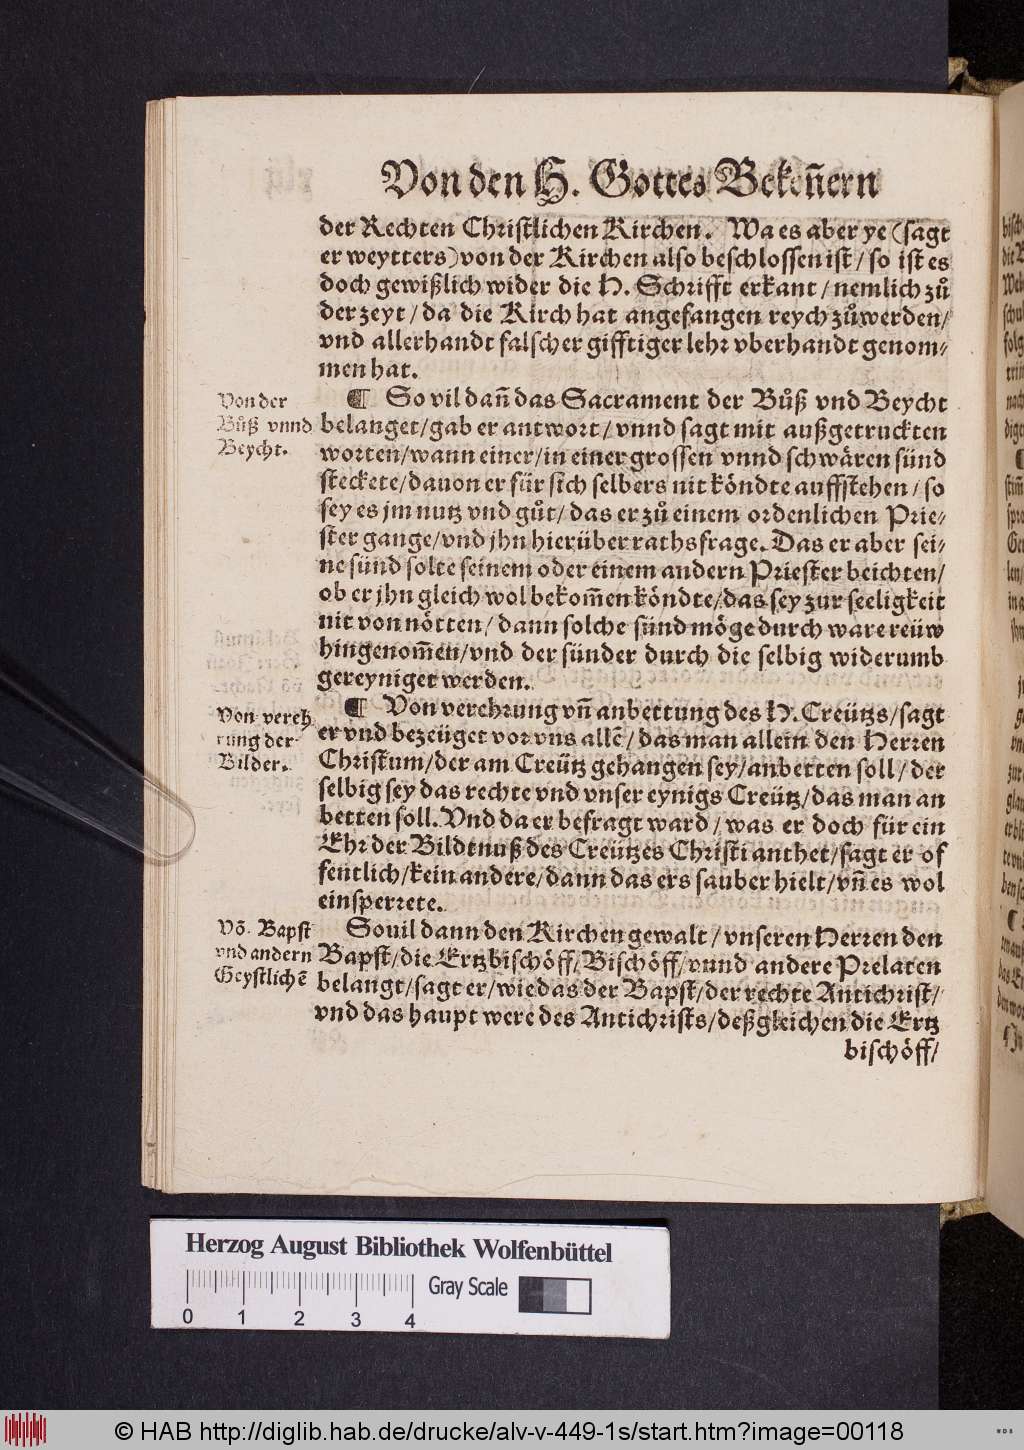 Von den H. Gottes Bekeñern
der Rechten Christlichen Kirchen. Wa es aber ye (sagt
er weytters) von der Kirchen also beschlossen ist / so ist es
doch gewißlich wider die H. Schrifft erkant / nemlich zů
der zeyt / da die Kirch hat angefangen reych zů werden /
vnd allerhandt falscher gifftiger lehr vberhandt genom-
men hat.
Von der
Bůß vnnd
Beycht.
¶ So vil dañ das Sacrament der Bůß vnd Beycht
belanget / gab er antwort / vnnd sagt mit außgetruckten
worten / wann einer / in einer grossen vnnd schwären sünd
steckete / dauon er für sich selbers nit köndte auffstehen / so
sey es jm nutz vnd gůt / das er zů einem ordenlichen Prie-
ster gange / vnd jhn hierüber rathsfrage. Das er aber sei-
ne sünd solte seinem oder einem andern Priester beichten /
ob er jhn gleich wol bekom̃en köndte / das sey zur seeligkeit
nit von nötten / dann solche sünd möge durch ware reüw
hingenom̃en / vnd der sünder durch die selbig widerumb
gereyniget werden.
Von vereh
rung der
Bilder.
¶ Von verehrung vñ anbettung des H. Creützs / sagt
er vnd bezeüget vor vns allẽ / das man allein den Herren
Christum / der am Creütz gehangen sey / anbetten soll / der
selbig sey das rechte vnd vnser eynigs Creütz / das man an
betten soll. Vnd da er befragt ward / was er doch für ein
Ehr der Bildtnuß des Creützes Christi anthet / sagt er of
fentlich / kein andere / dann das ers sauber hielt / vñ es wol
einsperrete.
Võ Bapst
vnd andern
Geystlichẽ
Souil dann den Kirchen gewalt / vnseren Herren den
Bapst / die Ertzbischöff / Bischöff / vnnd andere Prelaten
belangt / sagt er / wie das der Bapst / der rechte Antichrist /
vnd das haupt were des Antichrists / deßgleichen die Ertz
bischöff /
Herzog August Bibliothek Wolfenbüttel
Gray Scale
0 1 2 3 4
© HAB http://diglib.hab.de/drucke/alv-v-449-1s/start.htm?image=00118